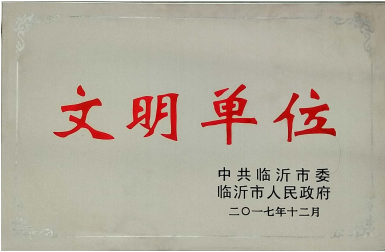 文明单位
中共临沂市委
临沂市人民政府
二〇一七年十二月